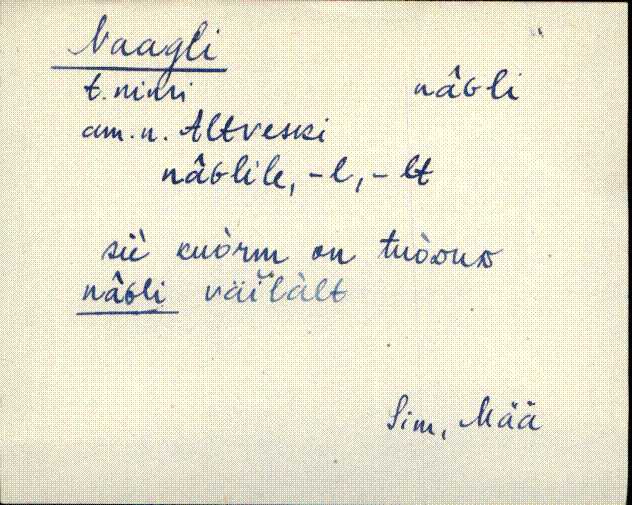 Naagli
t. nimi nâɢli
am. n. Altveski
nâɢlile, -l, -lt
siè kuòrm on
nâɢli väĭlàlt
Sim, Mää